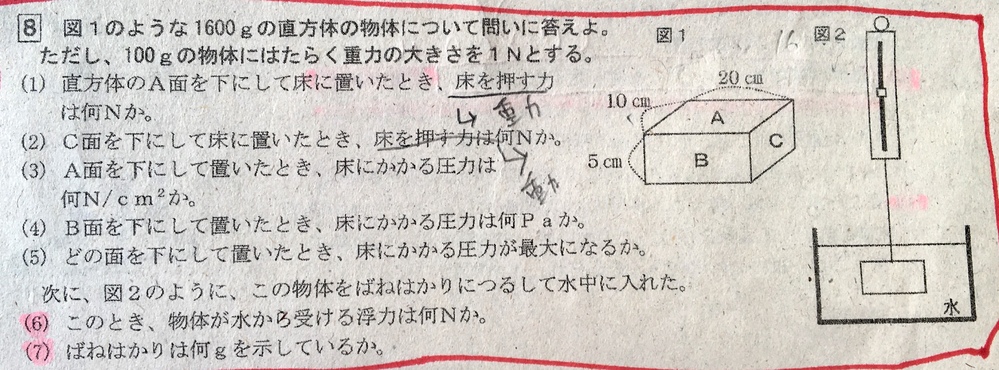 8 図1のような1600gの直方体の物体について問いに答えよ。
ただし、100gの物体にはたらく重力の大きさを1Nとする。
(1) 直方体のA面を下にして床に置いたとき、床を押す力
は何Nか。
→重力
(2) C面を下にして床に置いたとき、床を押す力は何Nか。
→重力
(3) A面を下にして置いたとき、床にかかる圧力は
何N/cm²か。
(4) B面を下にして置いたとき、床にかかる圧力は何Paか。
(5) どの面を下にして置いたとき、床にかかる圧力が最大になるか。
次に、図2のように、この物体をばねはかりにつるして水中に入れた。
(6) このとき、物体が水から受ける浮力は何Nか。
(7) ばねはかりは何gを示しているか。
図1
16
20cm
10cm
5cm
A
B
C
図2
水